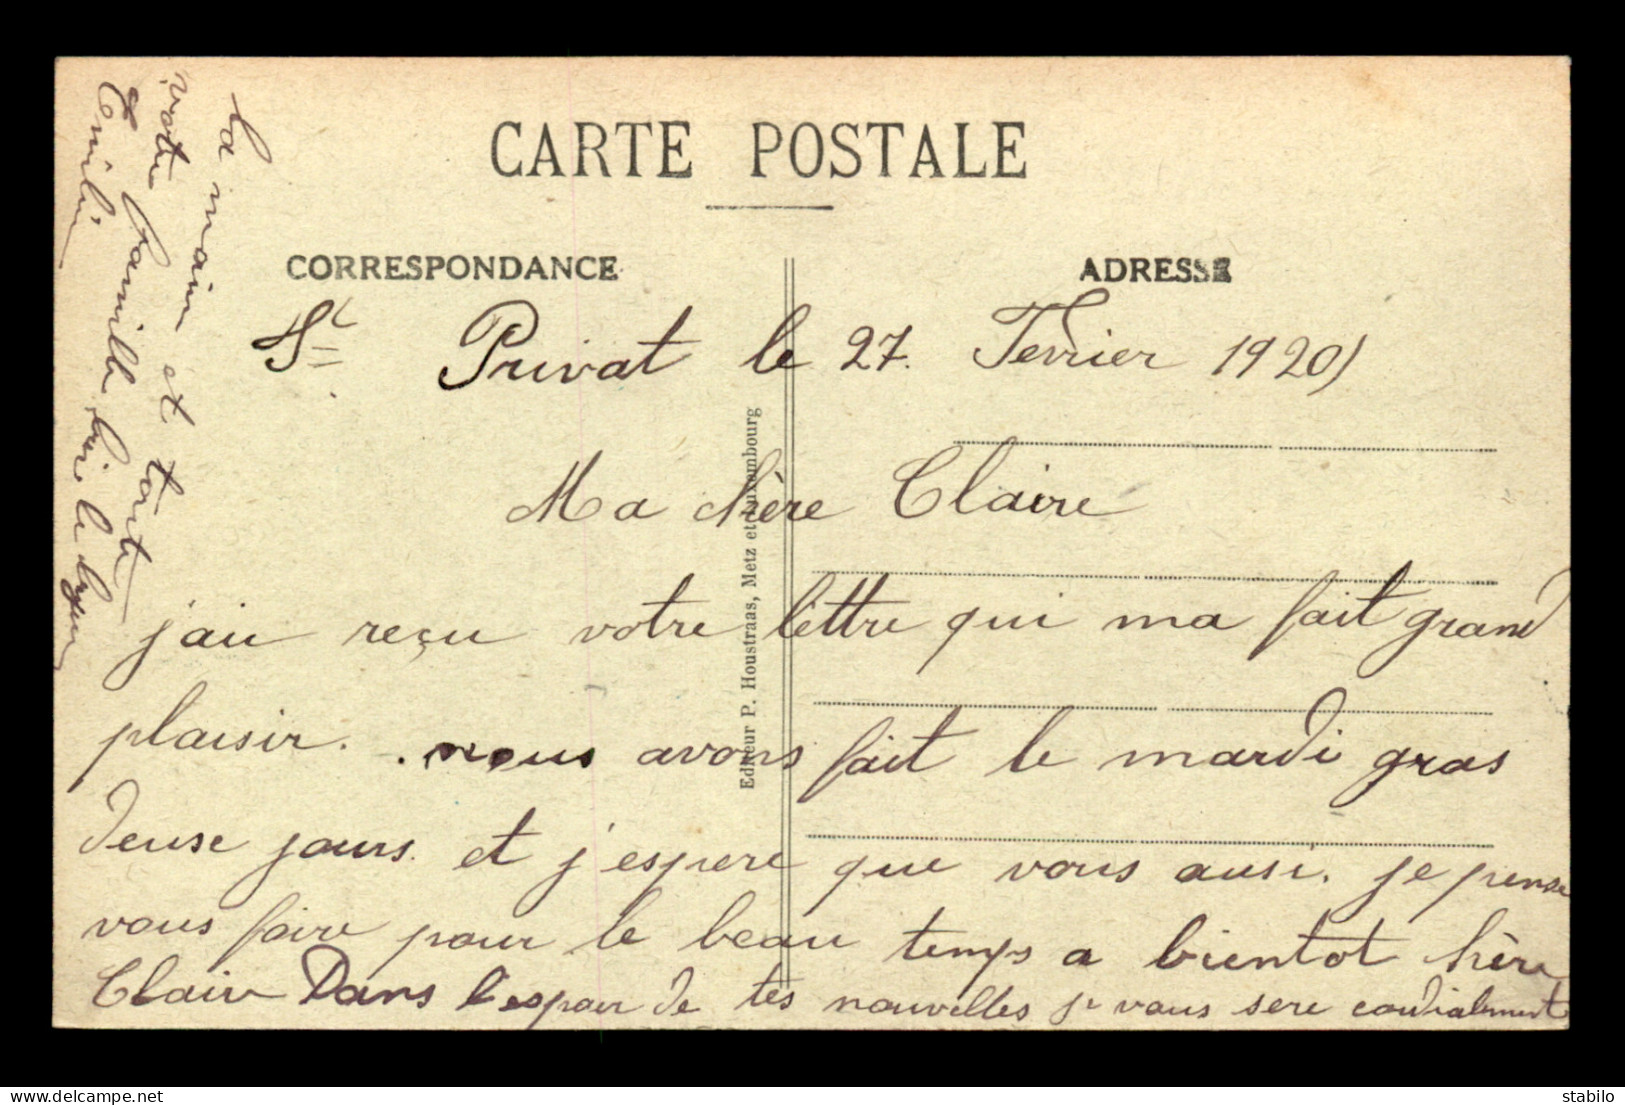 CARTE POSTALE
CORRESPONDANCE
ADRESSE
St Privat le 27. Fevrier 1920
Ma chère Claire
j'ai reçu votre lèttre qui ma fait grand
plaisir. nous avons fait le mardi gras
deuse jours. et j'espere que vous ausi. je pense
vous faire pour le beau temps a bientot hère
Claire Dans l'espoir de tes nouvelles je vous sere cordialement
la main et toute
votre famille
Emilie
Editeur P. Houstraas, Metz et Luxembourg
delcampe.net
stabilo